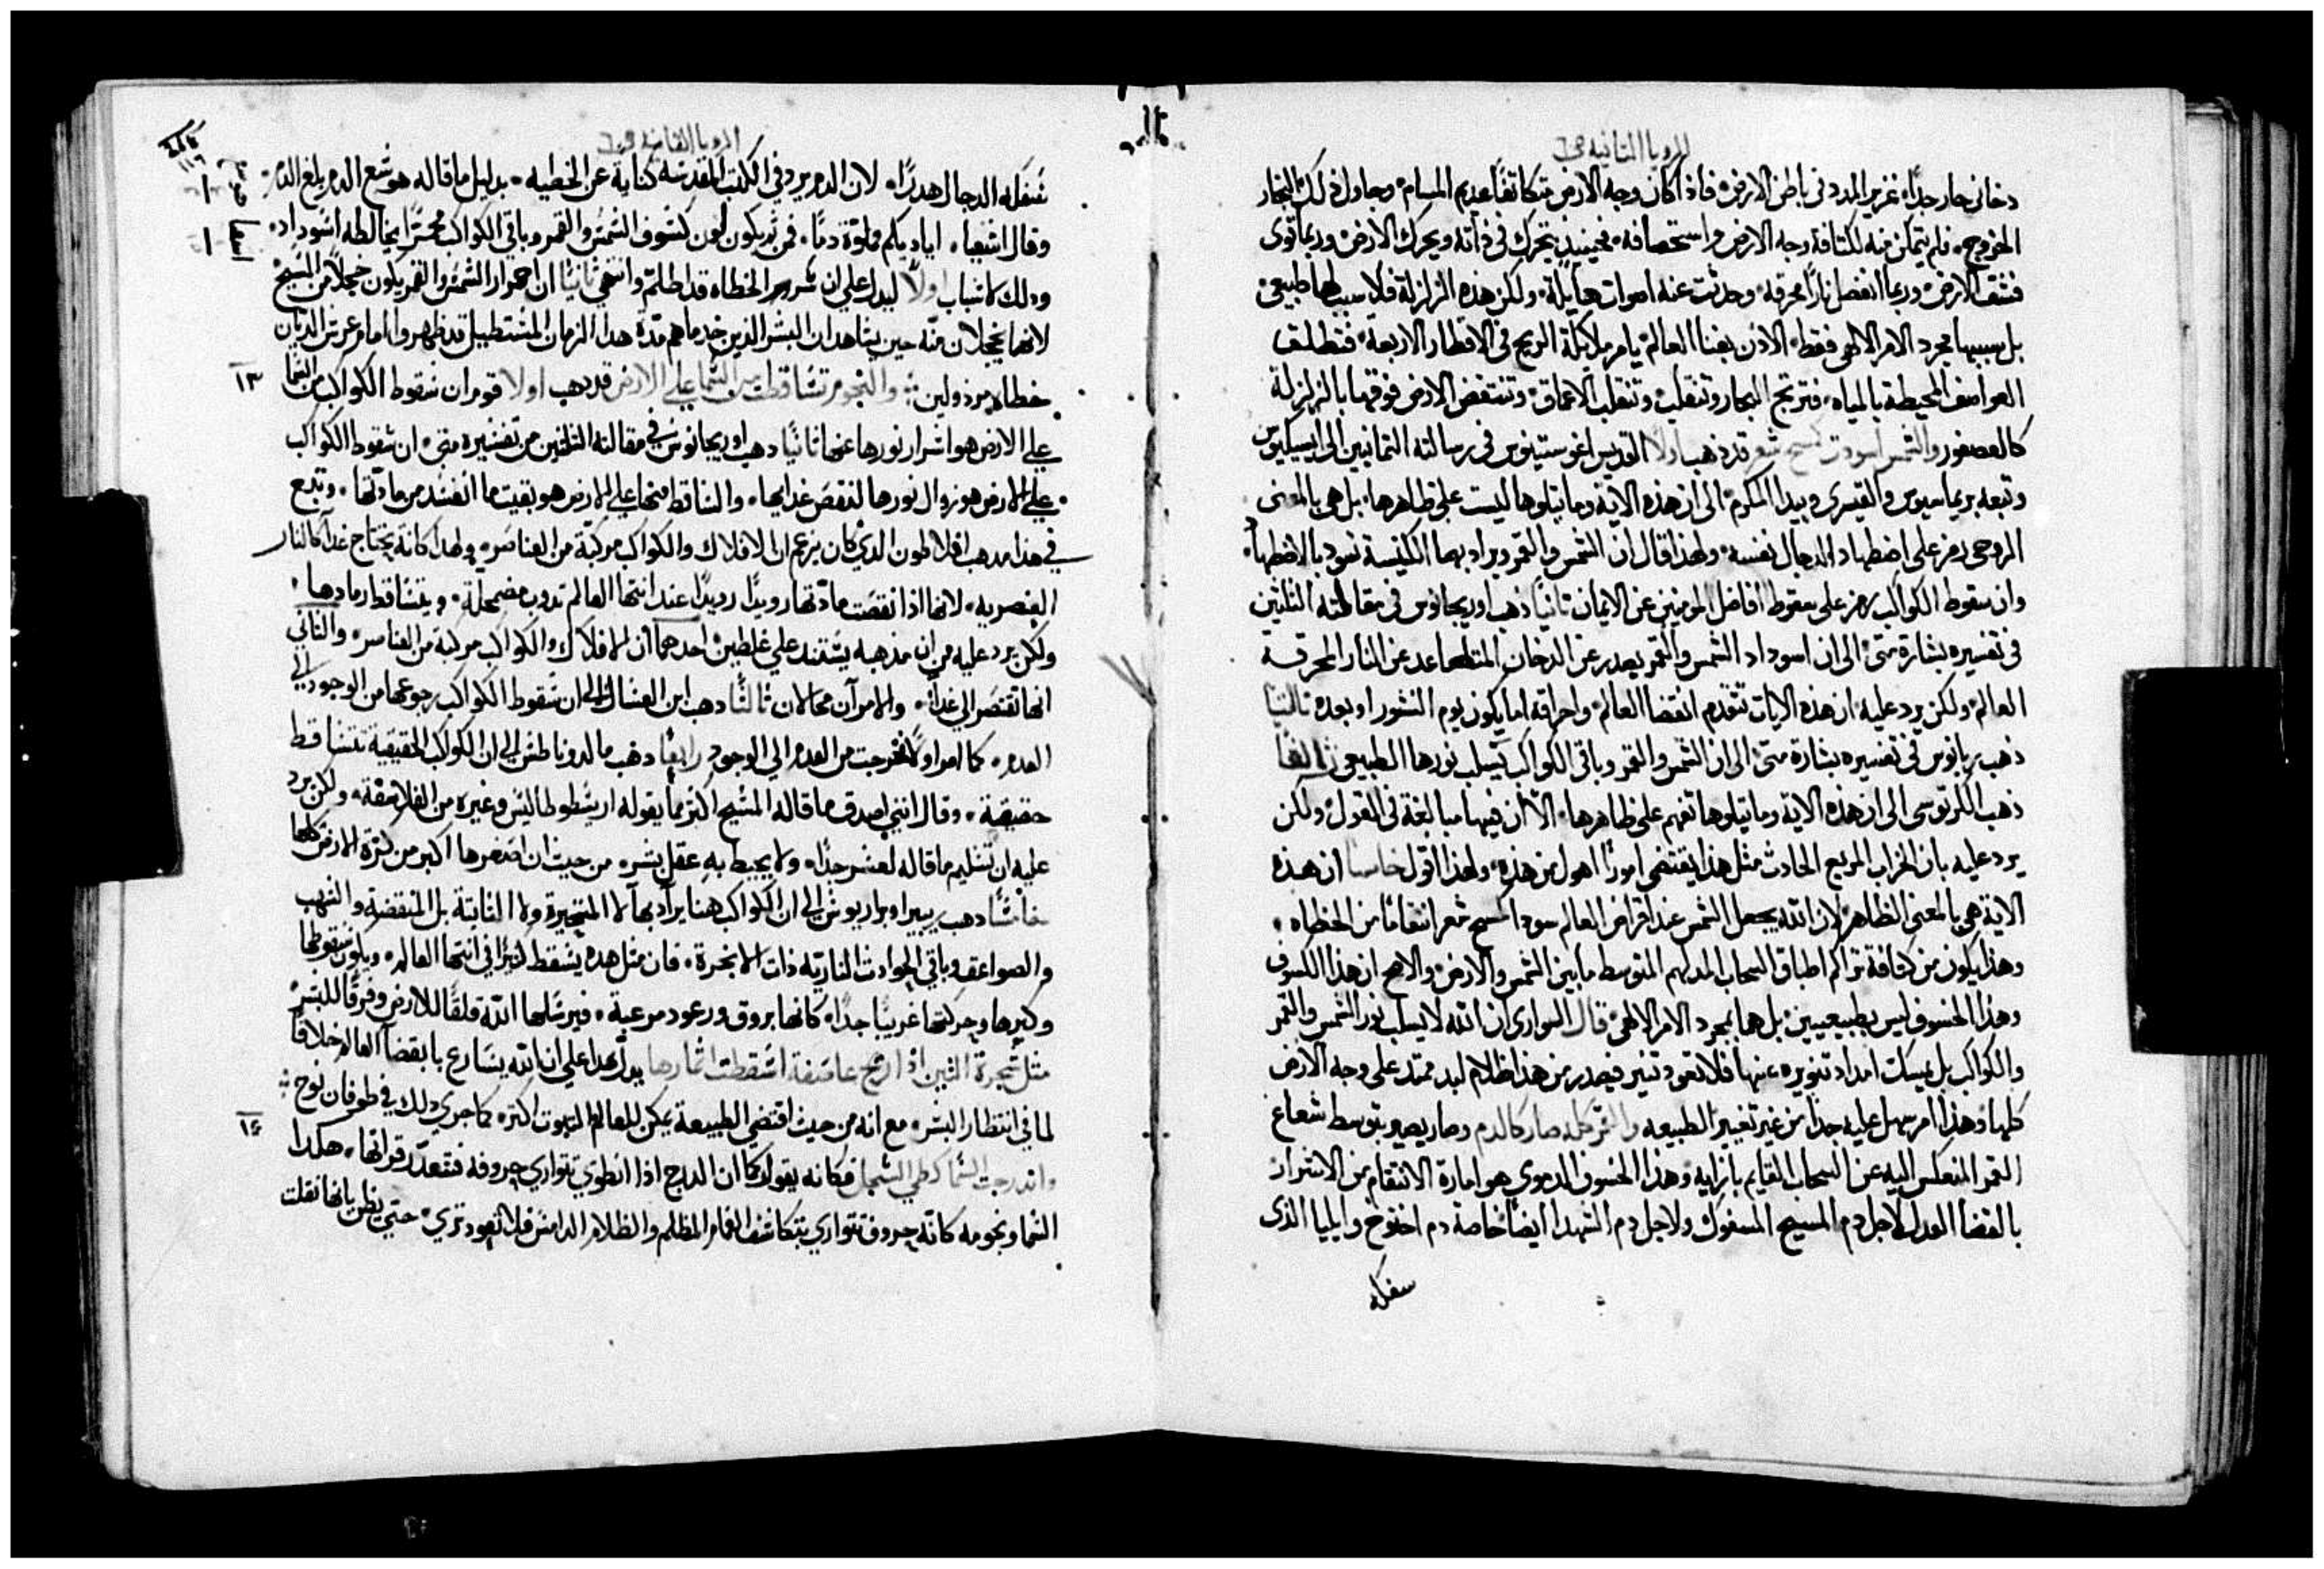 الرويا الثانيه ص٦
دخاني حار جدًا، غزير المدد في باطن الارض، فاذا كان وجه الارض متكاثفًا عديم المسام، وحاول ذلك البخار
الخروج، فلم يتمكن منه لكثافة وجه الارض واستحصافه، فحينيذٍ يتحرك في ذاته ويحرك الارض، وربما قوى
فشق الارض، وربما انفصل نارًا محرقه، وحدثت عنه اصوات هايلة، ولكن هذه الزلزلة فلا سببا لها طبيعى
بل سببها مجرد الامر الالهى فقط، الاذن بفنا العالم، يامر ملايكة الريح في الاقطار الاربعة، فتطلق
العواصف المحيطة بالمياه، فترتج البحار وتنقلب، وتنقلب الاعماق، وتنتفض الارض فوقها بالزلزلة
كالعصفور والشمس اسودت كمسح شعر قد ذهب اولًا القديس اغوستينوس في رسالته الثمانين الى ايسيكيوس
وتبعه بريماسيوس والقيسرى وبيدا المكرم، الى ان هذه الاية وما يتلوها ليست على ظاهرها، بل هي بالمعنى
الروحى رمز على اضطهاد الدجال نفسه، ولهذا قال ان الشمس والقمر ويراد بهما الكنيسة تسود بالاضطهاد،
وان سقوط الكواكب رمز على سقوط افاضل المومنين عن الايمان ثانيًا ذهب اوريجانوس في مقالته الثلثين
في تفسيره بشارة متى، الى ان اسوداد الشمس والقمر يصدر عن الدخان المتصاعد عن النار المحرقة
العالم، ولكن يرد عليه، ان هذه الايات تتقدم انقضا العالم، واحراقه اما يكون يوم النشور او بعده ثالثًا
ذهب ربانوس في تفسيره بشارة متى، الى ان الشمس والقمر وباقى الكواكب يسلب نورها الطبيعى
ذهب الكرتوسى الى ان هذه الاية وما يتلوها تفهم على ظاهرها، الا ان فيها مبالغة في القول، ولكن
يرد عليه بان الخراب المريع الحادث مثل هذا يقتضى امورًا اهول من هذه، ولهذا اقول خامسًا ان هذه
الاية هي بالمعنى الظاهر، لان الله يجعل الشمس عند انقراض العالم سودا كمسح شعر انتقامًا من الخطاه،
وهذا يكون من كثافة تراكم اطباق السحاب المدلهم المتوسط ما بين الشمس والارض، والاصح ان هذا الكسوف
وهذا الخسوف ليس بطبيعيين، بل هما بمجرد الامر الالهى، قال السوارى ان الله لا يسلب نور الشمس والقمر
والكواكب بل يمسك امداد تنويره عنها فلا تعود تنير فيصدر من هذا ظلام لبد ممتد على وجه الارض
كلها، وهذا امر سهل عليه جدًا من غير تغيير الطبيعه والقمر كله صار كالدم وصار يصير بتوسط شعاع
القمر المنعكس اليه عن السحاب القايم بازايه، وهذا الخسوف الدموى هو امارة الانتقام من الاشرار
بالقضا العدل لاجل دم المسيح المسفوك ولاجل دم الشهدا ايضًا خاصة دم اخنوخ وايليا الذى
سفكه
الرويا الثانيه ص٦
سَفكه الدجال هدرًا، لان الدم يرد في الكتب المقدسه كناية عن الخطيه، بدليل ما قاله هوشع الدم بلغ الدم،
وقال اشعيا، اياديكم مملوّة دمًا، فمن ثم يكون لون كسوف الشمس والقمر وباقي الكواكب محمرًا يخالطه اسوداد،
وذلك لاسباب اولًا ليدل على ان شرور الخطاه قد اطلم وانتهى ثانيًا ان احمرار الشمس والقمر يكون خجلًا من المسيح
لانهما يخجلان منه حين يشاهدان البشر الذين خدماهم مدّة هذا الزمان المستطيل قد ظهروا امام عرش الديان
١٣
خطاه مرذولين؛ والنجوم تساقطت من السما على الارض قد ذهب اولا قوم ان سقوط الكواكب من السما
على الارض هو انتثار نورها عنها ثانيًا ذهب اوريجانوس في مقالته الثلثين من تفسيره متى، ان سقوط الكواكب
على الارض هو زوال نورها لنقص غذايها، والساقط منها على الارض هو بقيت ما انفسد من مادتها، وتبع
في هذا مذهب افلاطون الذي كان يزعم ان الافلاك والكواكب مركبّة من العناصر، ولهذا كانت تحتاج غذا كالنار
العنصريه، لانها اذا نقصت مادتها رويدًا رويدًا عند انتها العالم تذوب مضمحلّة، ويتساقط رمادها،
ولكن يرد عليه من ان مذهبه يستند على غلطين، احدهما ان الافلاك والكواكب مركبة من العناصر، والثاني
انها تفتقر الى غذآ، والامران محالان ثالثًا ذهب ابن العسال الى ان سقوط الكواكب رجوعها من الوجود الى
العدم، كما امر اولًا فخرجت من العدم الى الوجود رابعًا ذهب مالدوناطس الى ان الكواكب الحقيقية تتساقط
حقيقة، وقال انني اصدق ما قاله المسيح اكثر مما يقوله ارسطوطاليس وغيره من الفلاسفة، ولكن يرد
عليه ان تسليم ما قاله لعسر جدًا، ولا يحيط به عقل بشر، من حيث ان اصغرها اكبر من كرّة الارض كلها
خامسًا ذهب ريبيرا وبراريوس الى ان الكواكب هنا يراد بها لا المتحيرة ولا الثابتة بل المنقضة والشهب
والصواعق وباقي الحوادث الناريّه ذات الابخرة، فان مثل هذه يسقط كثيرًا في انتها العالم، ويكون سقوطها
وكبرها وحركتها غريبًا جدًا، كانها بروق ورعود مرعبة، فيرسلها الله قلقًا للارض وفرقًا للبشر
مثل شجرة التين اذا ريح عاصفة اسقطت اثمارها يدل هذا على ان الله يسارع بانقضآ العالم خلافًا
لما في انتظار البشر، مع انه من حيث اقتضى الطبيعة يمكن للعالم الثبوت اكثر، كما جرى ذلك في طوفان نوح؛
١٤
واندرجت السما كطي السجل فكانه يقول كما ان الدرج اذا انطوي تتواري حروفه فتتعذّر قراتها، هكذا
السما ونجومه كانه حروف تتواري بتكاثف الغمام المظلم والظلام الدامس فلا تعود ترى، حتى يظن بانها نقلت